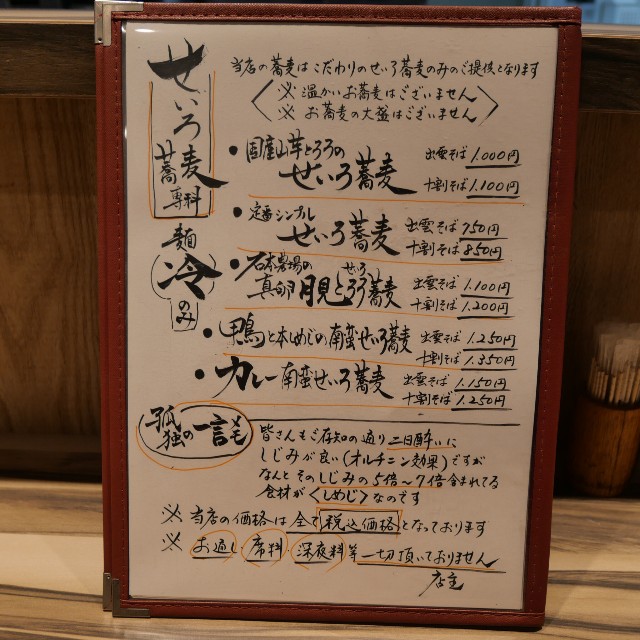 せいろ
蕎麦
専科
麺
冷
のみ
当店の蕎麦はこだわりのせいろ蕎麦のみのご提供となります
※ 温かいお蕎麦はございません
※ お蕎麦の大盛はございません
・国産山芋とろろの
せいろ蕎麦
出雲そば 1.000円
十割そば 1.100円
・定番シンプル
せいろ蕎麦
出雲そば 750円
十割そば 850円
・石本農場の
真卵 月見とろろ蕎麦
せいろ
出雲そば 1.100円
十割そば 1.200円
・鴨と本しめじの南蛮せいろ蕎麦
出雲そば 1.250円
十割そば 1.350円
・カレー南蛮せいろ蕎麦
出雲そば 1.150円
十割そば 1.250円
孤独の一言メモ
皆さんもご存知の通り二日酔いに
しじみが良い(オルチニン効果)ですが
なんとそのしじみの5倍～7倍含まれてる
食材が〈しめじ〉なのです
※ 当店の価格は全て税込価格となっております
※ お通し・席料・深夜料等一切頂いておりません
店主